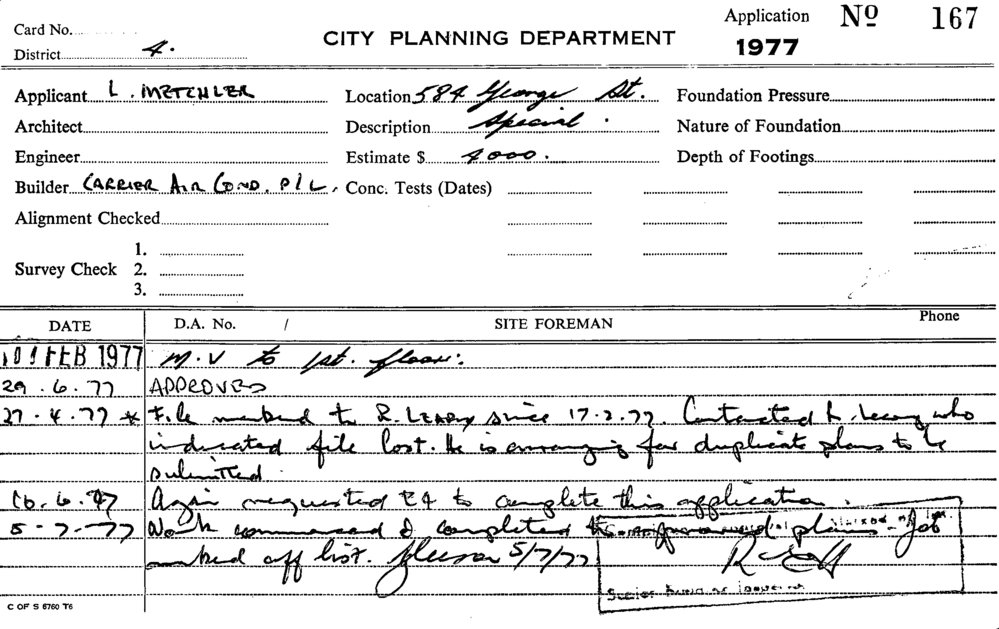 Card No.
District 4.
CITY PLANNING DEPARTMENT
Application Nº 167
1977
Applicant L. METCHLER Location 584 George St. Foundation Pressure
Architect Description Special. Nature of Foundation
Engineer Estimate $ 4000. Depth of Footings
Builder CARRIER AIR COND. P/L. Conc. Tests (Dates)
Alignment Checked
1.
Survey Check 2.
3.
DATE D.A. No. / SITE FOREMAN Phone
FEB 1977 M.V to 1st. floor.
29.6.77 APPROVED
27.4.77 * File marked to R. LEARY since 17.2.77. Contacted R. Leary who
indicated file lost. He is arranging for duplicate plans to be
submitted.
16.6.77 Again requested to complete this application.
5-7-77 Work commenced & completed approved plans - Job
marked off list. 5/7/77
Senior Building Inspector
C OF S 6760 T6